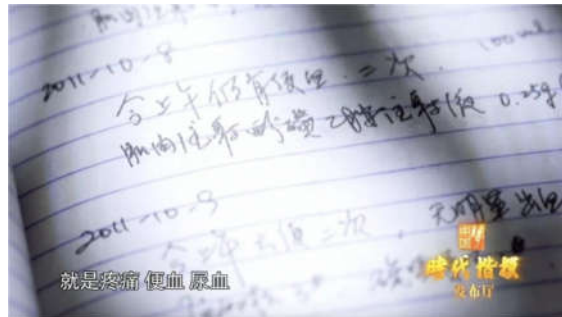 肌肉注射
2011-10-8
今上午仍有便血.二次. 100ml
肌肉注射酚磺乙胺注射液 0.25g
2011-10-9
今上午大便二次, 无明显出血
就是疼痛 便血 尿血
时代楷模
发布厅